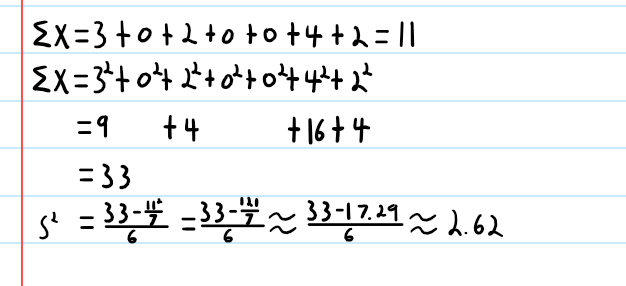 ΣX=3+0+2+0+0+4+2=11
ΣX=3²+0²+2²+0²+0²+4²+2²
=9 +4 +16+4
=33
S² = (33-11²/7)/6 = (33-121/7)/6 ≈ (33-17.29)/6 ≈ 2.62